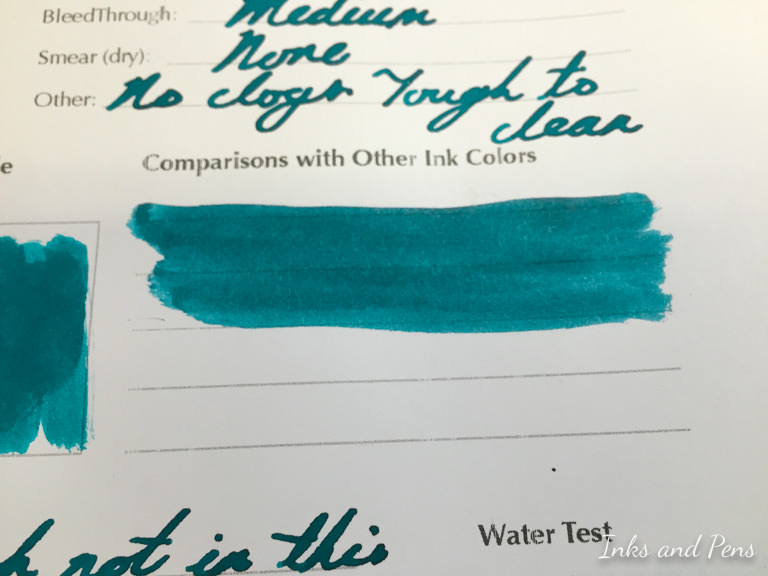 BleedThrough: Medium
Smear (dry): None
Other: No clogs Tough to
clean
e
Comparisons with Other Ink Colors
not in this
Water Test
Inks and Pens